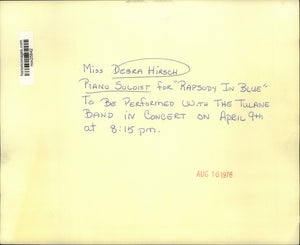 Miss Debra Hirsch
Piano Soloist for "Rapsody In Blue"
To Be Performed With The Tulane
Band in Concert on April 9th
at 8:15 pm.
AUG 10 1976